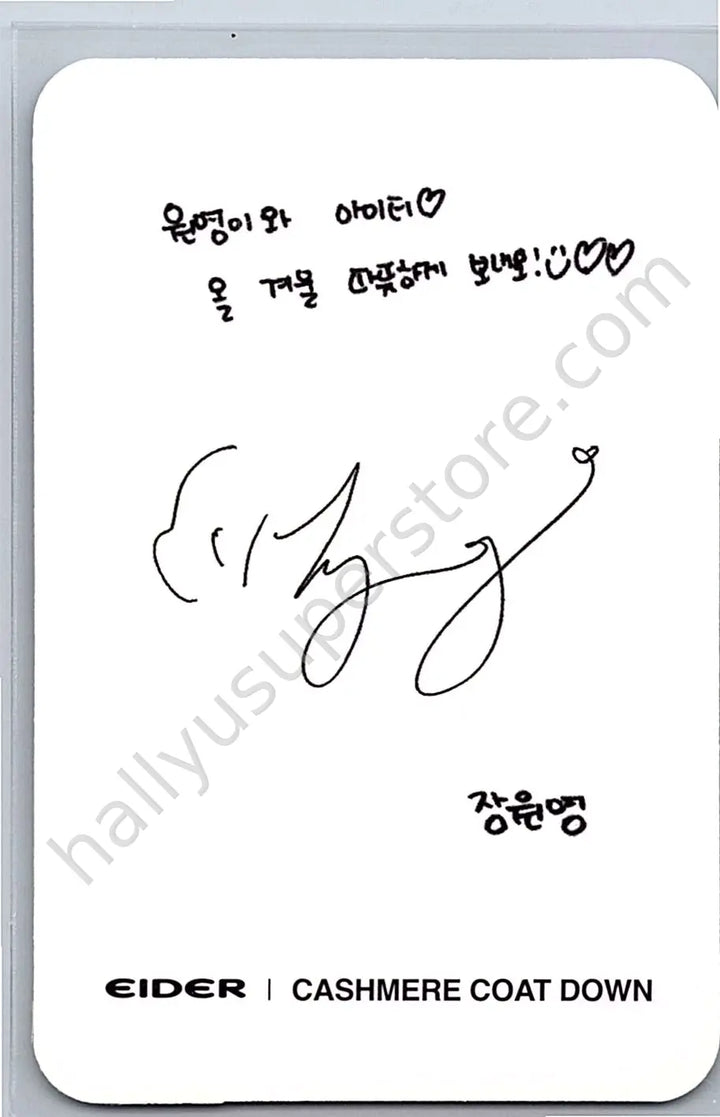 원영이와 아이더♡
올 겨울 따뜻하게 보내요!♡♡
장원영
EIDER | CASHMERE COAT DOWN
hallyusuperstore.com